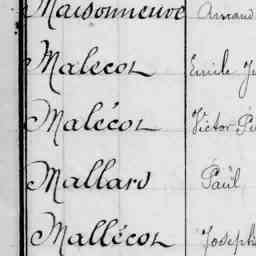 Maisonneuve Armand
Malecot Emile Ju
Malécot Victor Pi
Mallard Paul
Mallécot Joseph